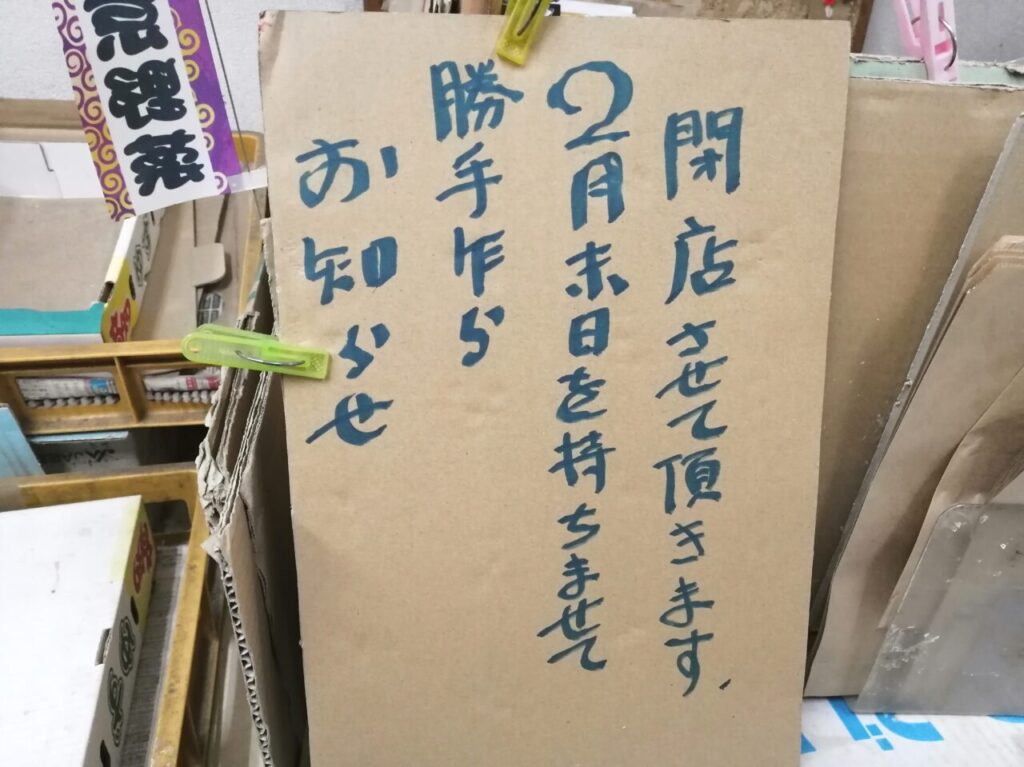 お知らせ
勝手乍ら
2月末日を持ちませて
閉店させて頂きます